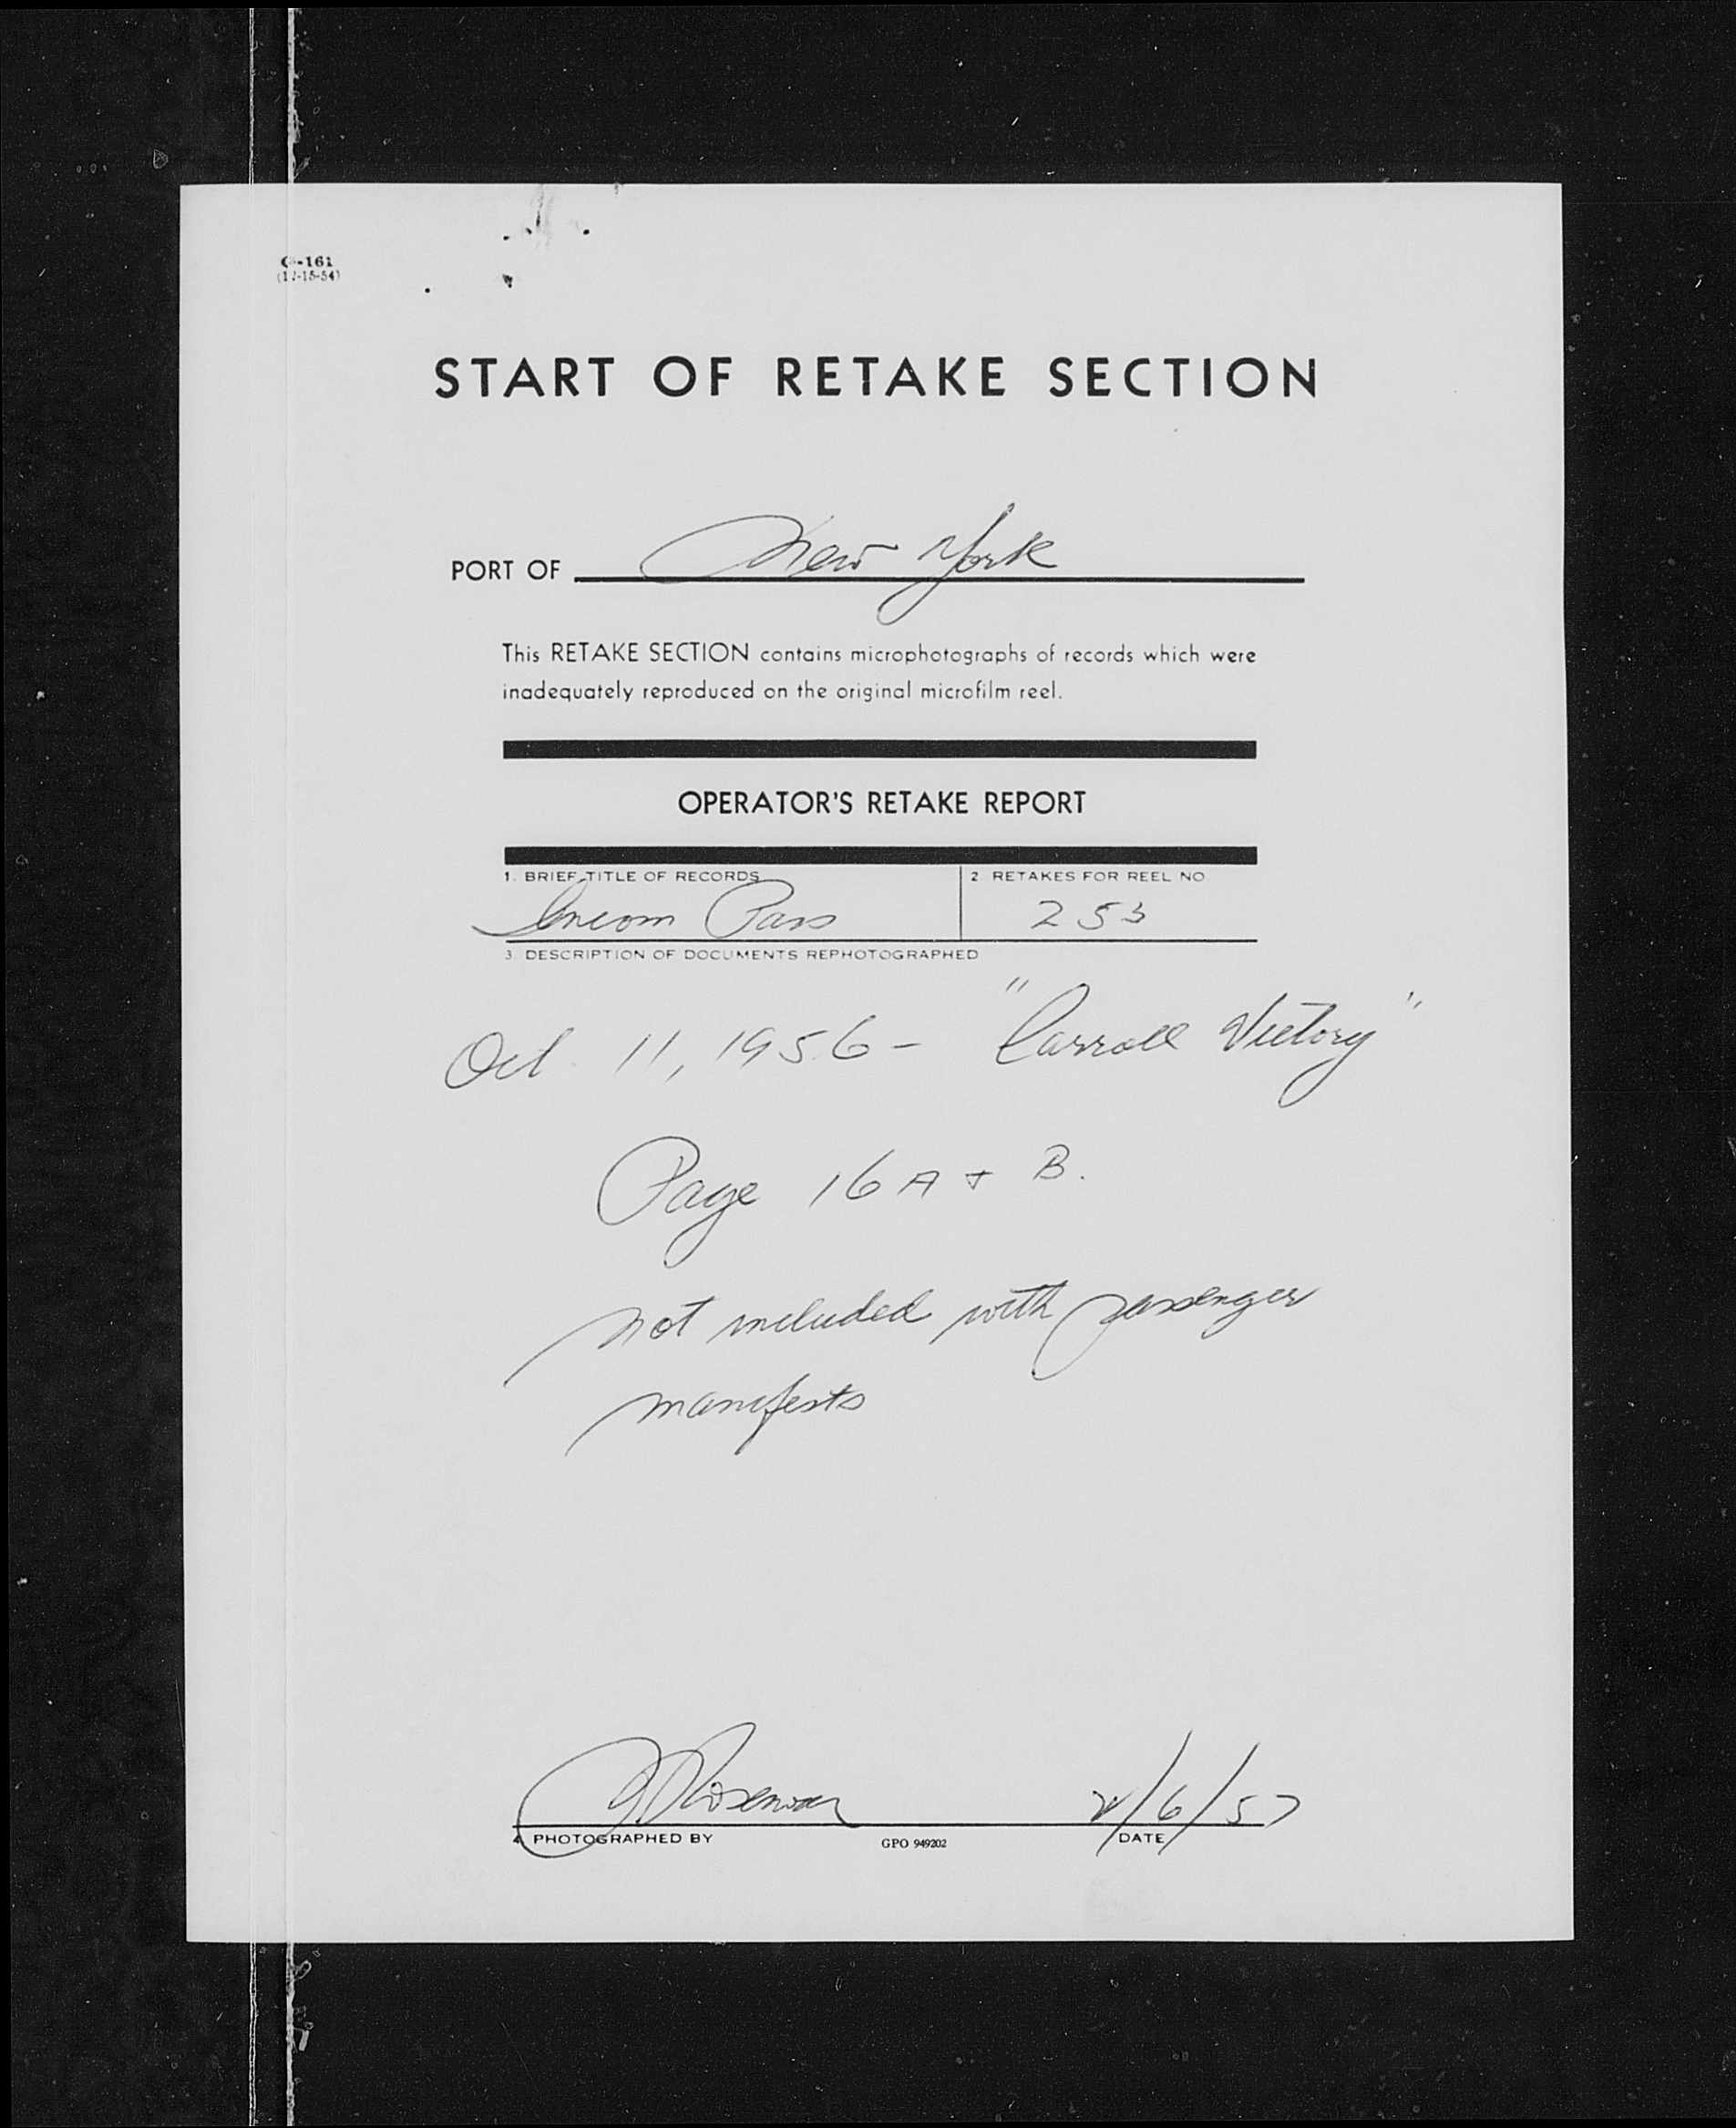 G-161
(12-15-54)
START OF RETAKE SECTION
PORT OF New York
This RETAKE SECTION contains microphotographs of records which were
inadequately reproduced on the original microfilm reel.
OPERATOR'S RETAKE REPORT
1. BRIEF TITLE OF RECORDS 2. RETAKES FOR REEL NO
Incom Pass 253
3. DESCRIPTION OF DOCUMENTS REPHOTOGRAPHED
Oct. 11, 1956 - "Carroll Victory"
Page 16A + B.
not included with passenger
manifests
2/6/57
4. PHOTOGRAPHED BY GPO 949202 DATE